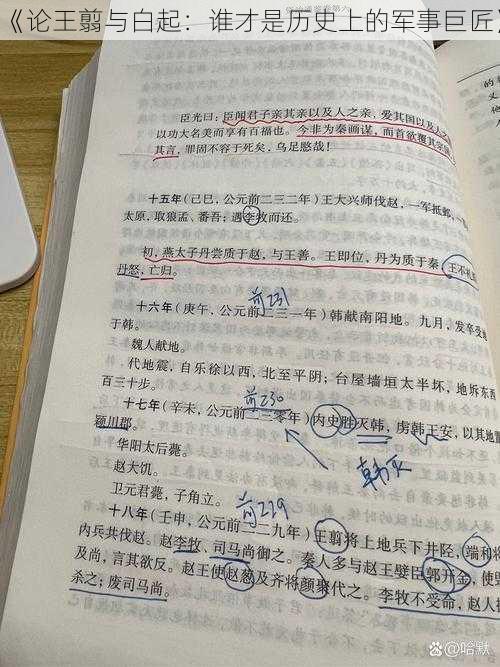 《论王翦与白起：谁才是历史上的军事巨匠
通鉴卷第六
臣光曰：臣闻君子亲其亲以及人之亲，爱其国以及人之
以功大名美而享有百福也。今非为秦画谋，而首欲覆其宗
其言，罪固不容于死矣，乌足愍哉！
十五年（己巳，公元前二三二年）王大兴师伐赵，一军抵邺，一
太原，取狼孟、番吾；遇李牧而还。
初，燕太子丹尝质于赵，与王善。王即位，丹为质于秦，王不礼
丹怒，亡归。
前231
十六年（庚午，公元前二三一年）韩献南阳地。九月，发卒受地
于韩。
魏人献地。
代地震，自乐徐以西，北至平阴；台屋墙垣太半坏，地坼东西
百三十步。
前230
十七年（辛未，公元前二三零年）内史胜灭韩，虏韩王安，以其地置
颍川郡。
韩灭
华阳太后薨。
赵大饥。
卫元君薨，子角立。
前229
十八年（壬申，公元前二二九年）王翦将上地兵下井陉，端和将
内兵共伐赵。赵李牧、司马尚御之。秦人多与赵王嬖臣郭开金，使
及尚，言其欲反。赵王使赵葱及齐将颜聚代之。李牧不受命，赵人
杀之；废司马尚。
的
义
他
@哈默